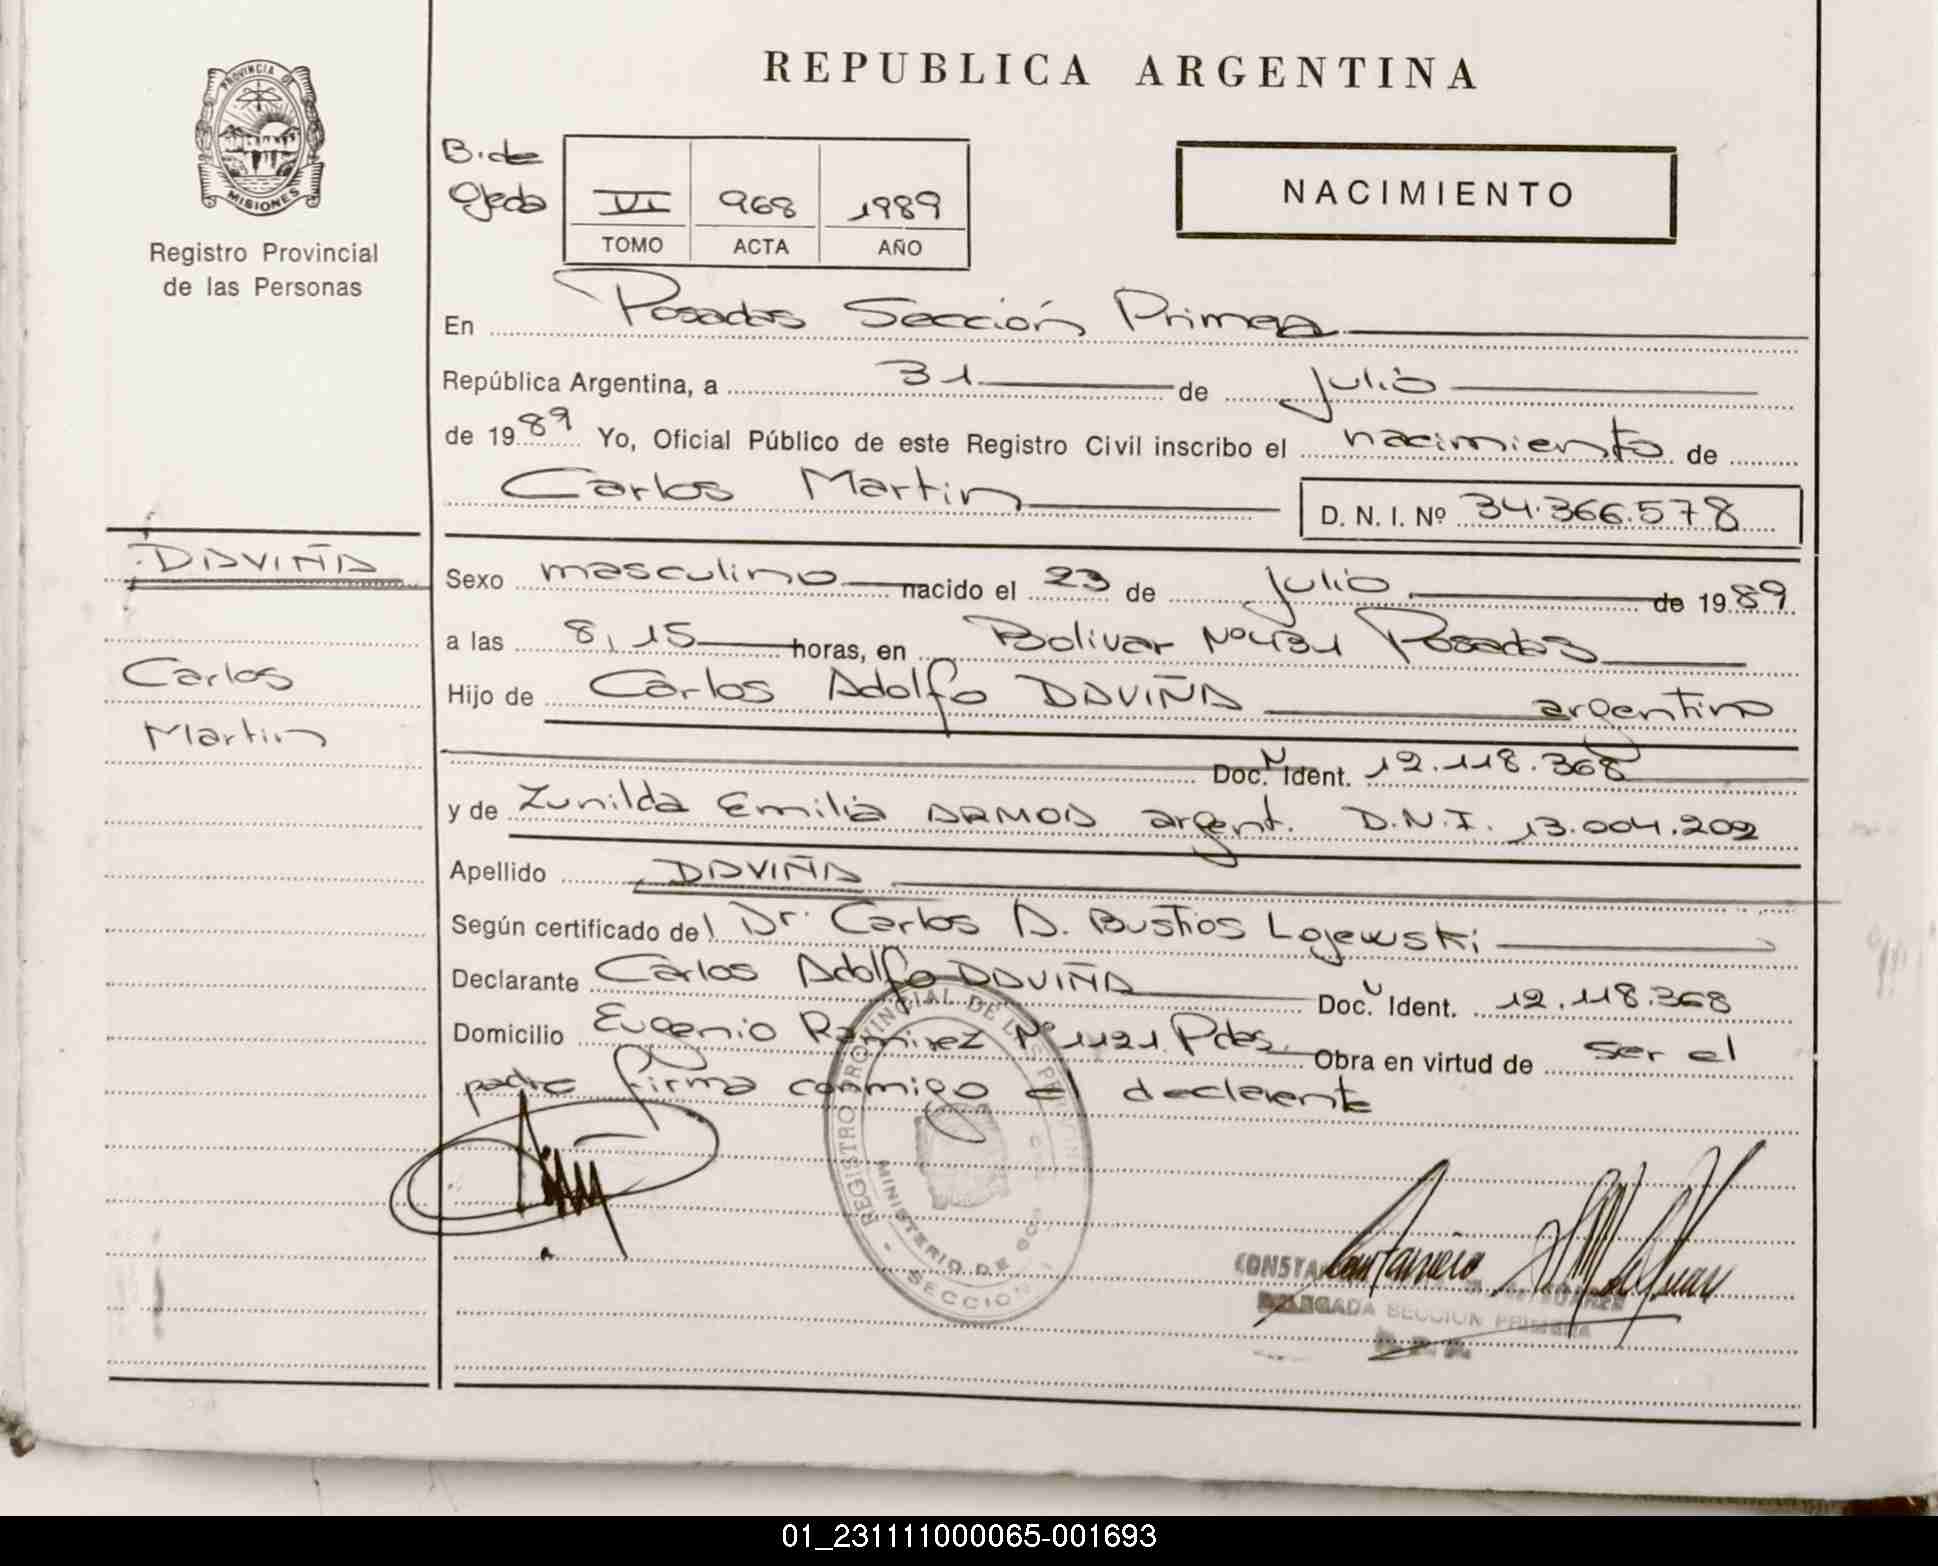 PROVINCIA DE
MISIONES
Registro Provincial
de las Personas
DAVIÑA
Carlos
Martin
REPUBLICA ARGENTINA
B. de
Ojeda
VI 968 1989
TOMO ACTA AÑO
NACIMIENTO
En Posadas Sección Primera
República Argentina, a 31 de julio
de 1989 Yo, Oficial Público de este Registro Civil inscribo el nacimiento de
Carlos Martin D. N. I. Nº 34.366.578
Sexo masculino nacido el 23 de julio de 1989
a las 8,15 horas, en Bolivar Nº 431 Posadas
Hijo de Carlos Adolfo DAVIÑA argentino
Doc. N Ident. 12.118.368
y de Zunilda Emilia ARMOA argent. D.N.I. 13.004.202
Apellido DAVIÑA
Según certificado del Dr. Carlos A. Bustios Lojewski
Declarante Carlos Adolfo DAVIÑA Doc. N Ident. 12.118.368
Domicilio Eugenio Ramirez Nº 1121 Pdas. Obra en virtud de ser el
padre firma conmigo el declarante
REGISTRO PROVINCIAL DE LAS PERSONAS
MINISTERIO DE GOB
SECCION
DELEGADA SECCION PRIMERA
R. P. P.
01_231111000065-001693